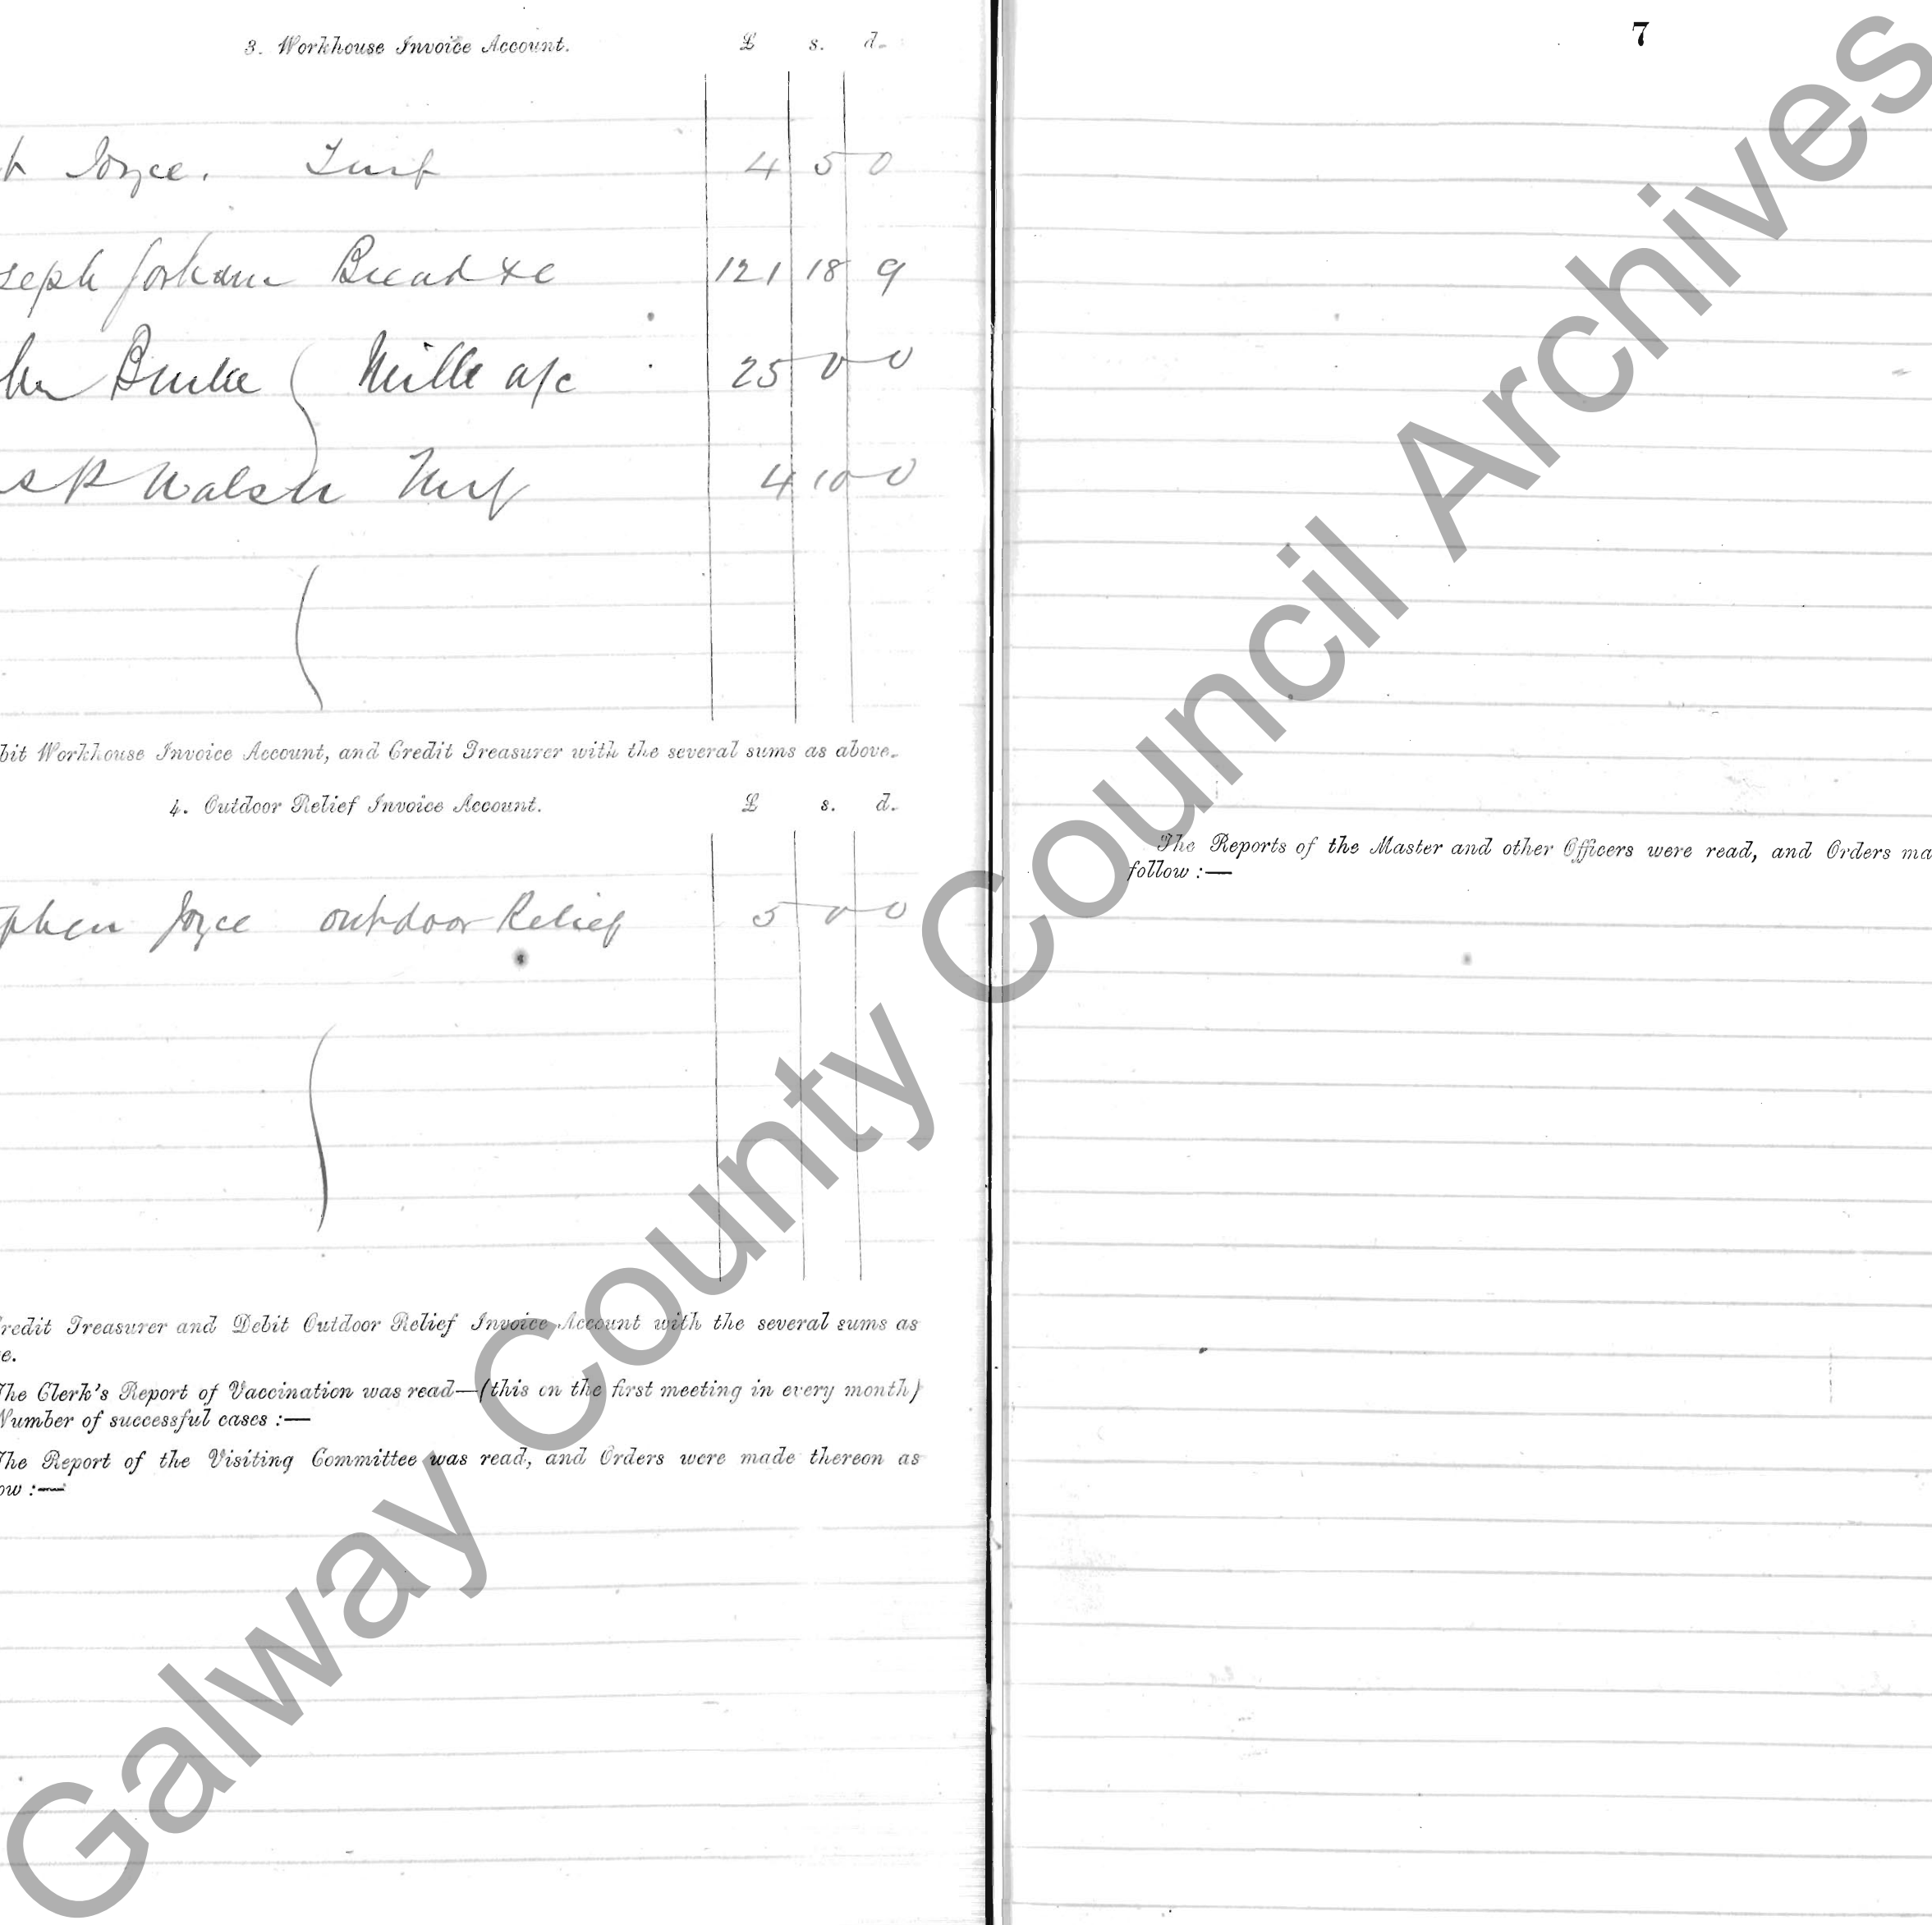 3. Workhouse Invoice Account. £ s. d.
Joyce. Turf 4 5 0
seph Bread &c 121 18 9
Burke Milk a/c 25 0 0
Walsh Turf 4 10 0
bit Workhouse Invoice Account, and Credit Treasurer with the several sums as above.
4. Outdoor Relief Invoice Account. £ s. d.
phen Joyce outdoor Relief 5 0 0
redit Treasurer and Debit Outdoor Relief Invoice Account with the several sums as
e.
The Clerk's Report of Vaccination was read—(this on the first meeting in every month)
Number of successful cases :—
The Report of the Visiting Committee was read, and Orders were made thereon as
ow :—
7
The Reports of the Master and other Officers were read, and Orders ma
follow :—
Galway County Council Archives